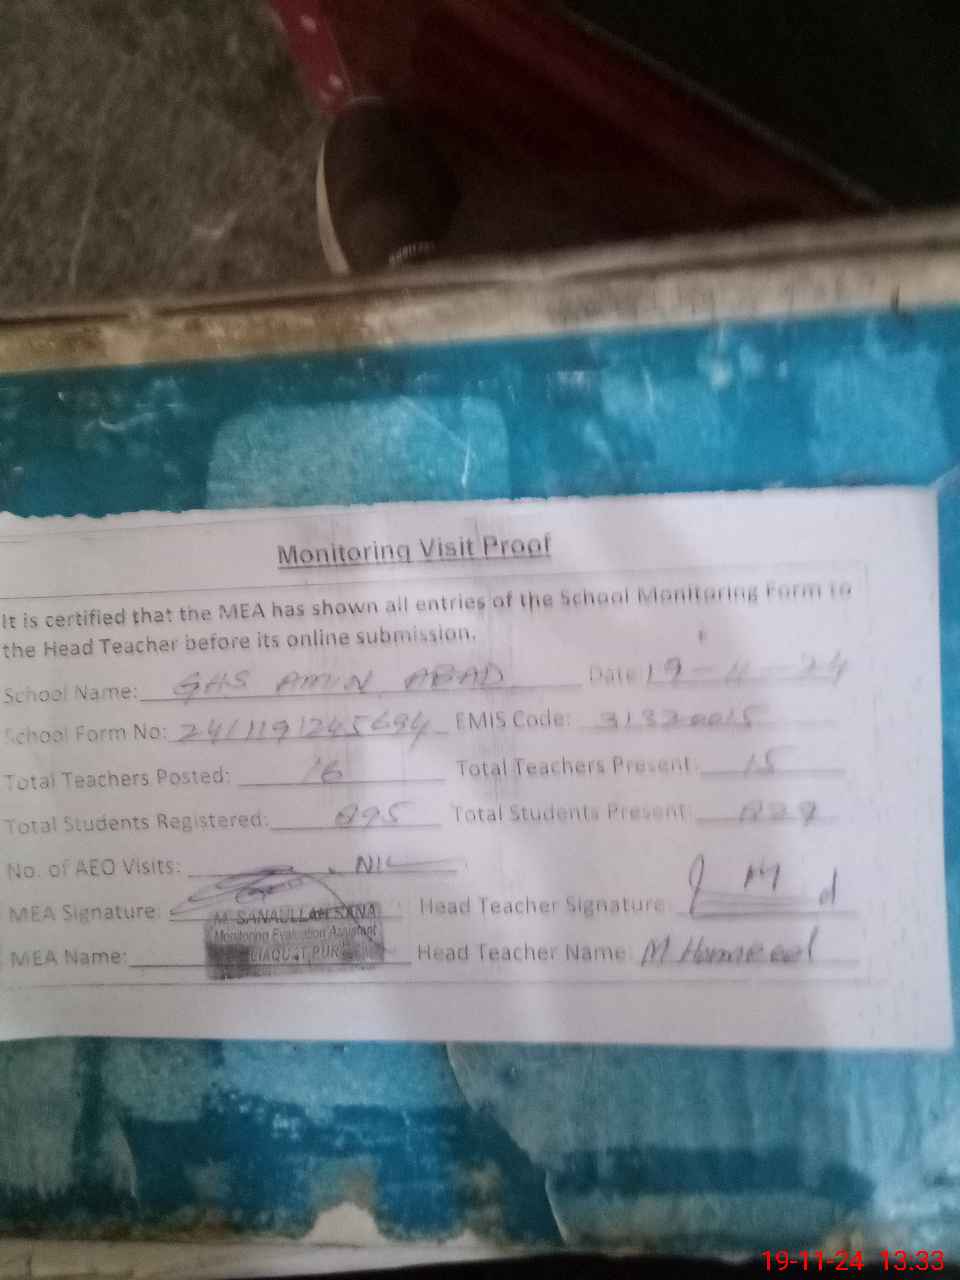 Monitoring Visit Proof
It is certified that the MEA has shown all entries of the School Monitoring Form to
the Head Teacher before its online submission.
School Name: GHS AMIN ABAD Date 19-11-24
School Form No: 2411191245694 EMIS Code: 31320015
Total Teachers Posted: 16 Total Teachers Present: 15
Total Students Registered: 895 Total Students Present:
No. of AEO Visits: NIL
MEA Signature: Head Teacher Signature:
M. SANAULLAH SANA
Monitoring Evaluation Assistant
LIAQUAT PUR
MEA Name: Head Teacher Name: M
19-11-24 13:33